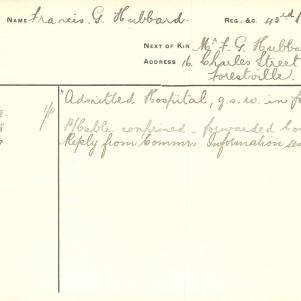 NAME Francis. G. Hubbard. REG. &C. 43rd
NEXT OF KIN Mr F. G. Hubba
ADDRESS 16. Charles Street
Forestville.
"Admitted Hospital, g.s.w. in
P/Cable confirmed - forwarded
Reply from Commrs Information